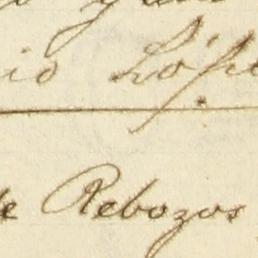 io Lópe
de Rebozos